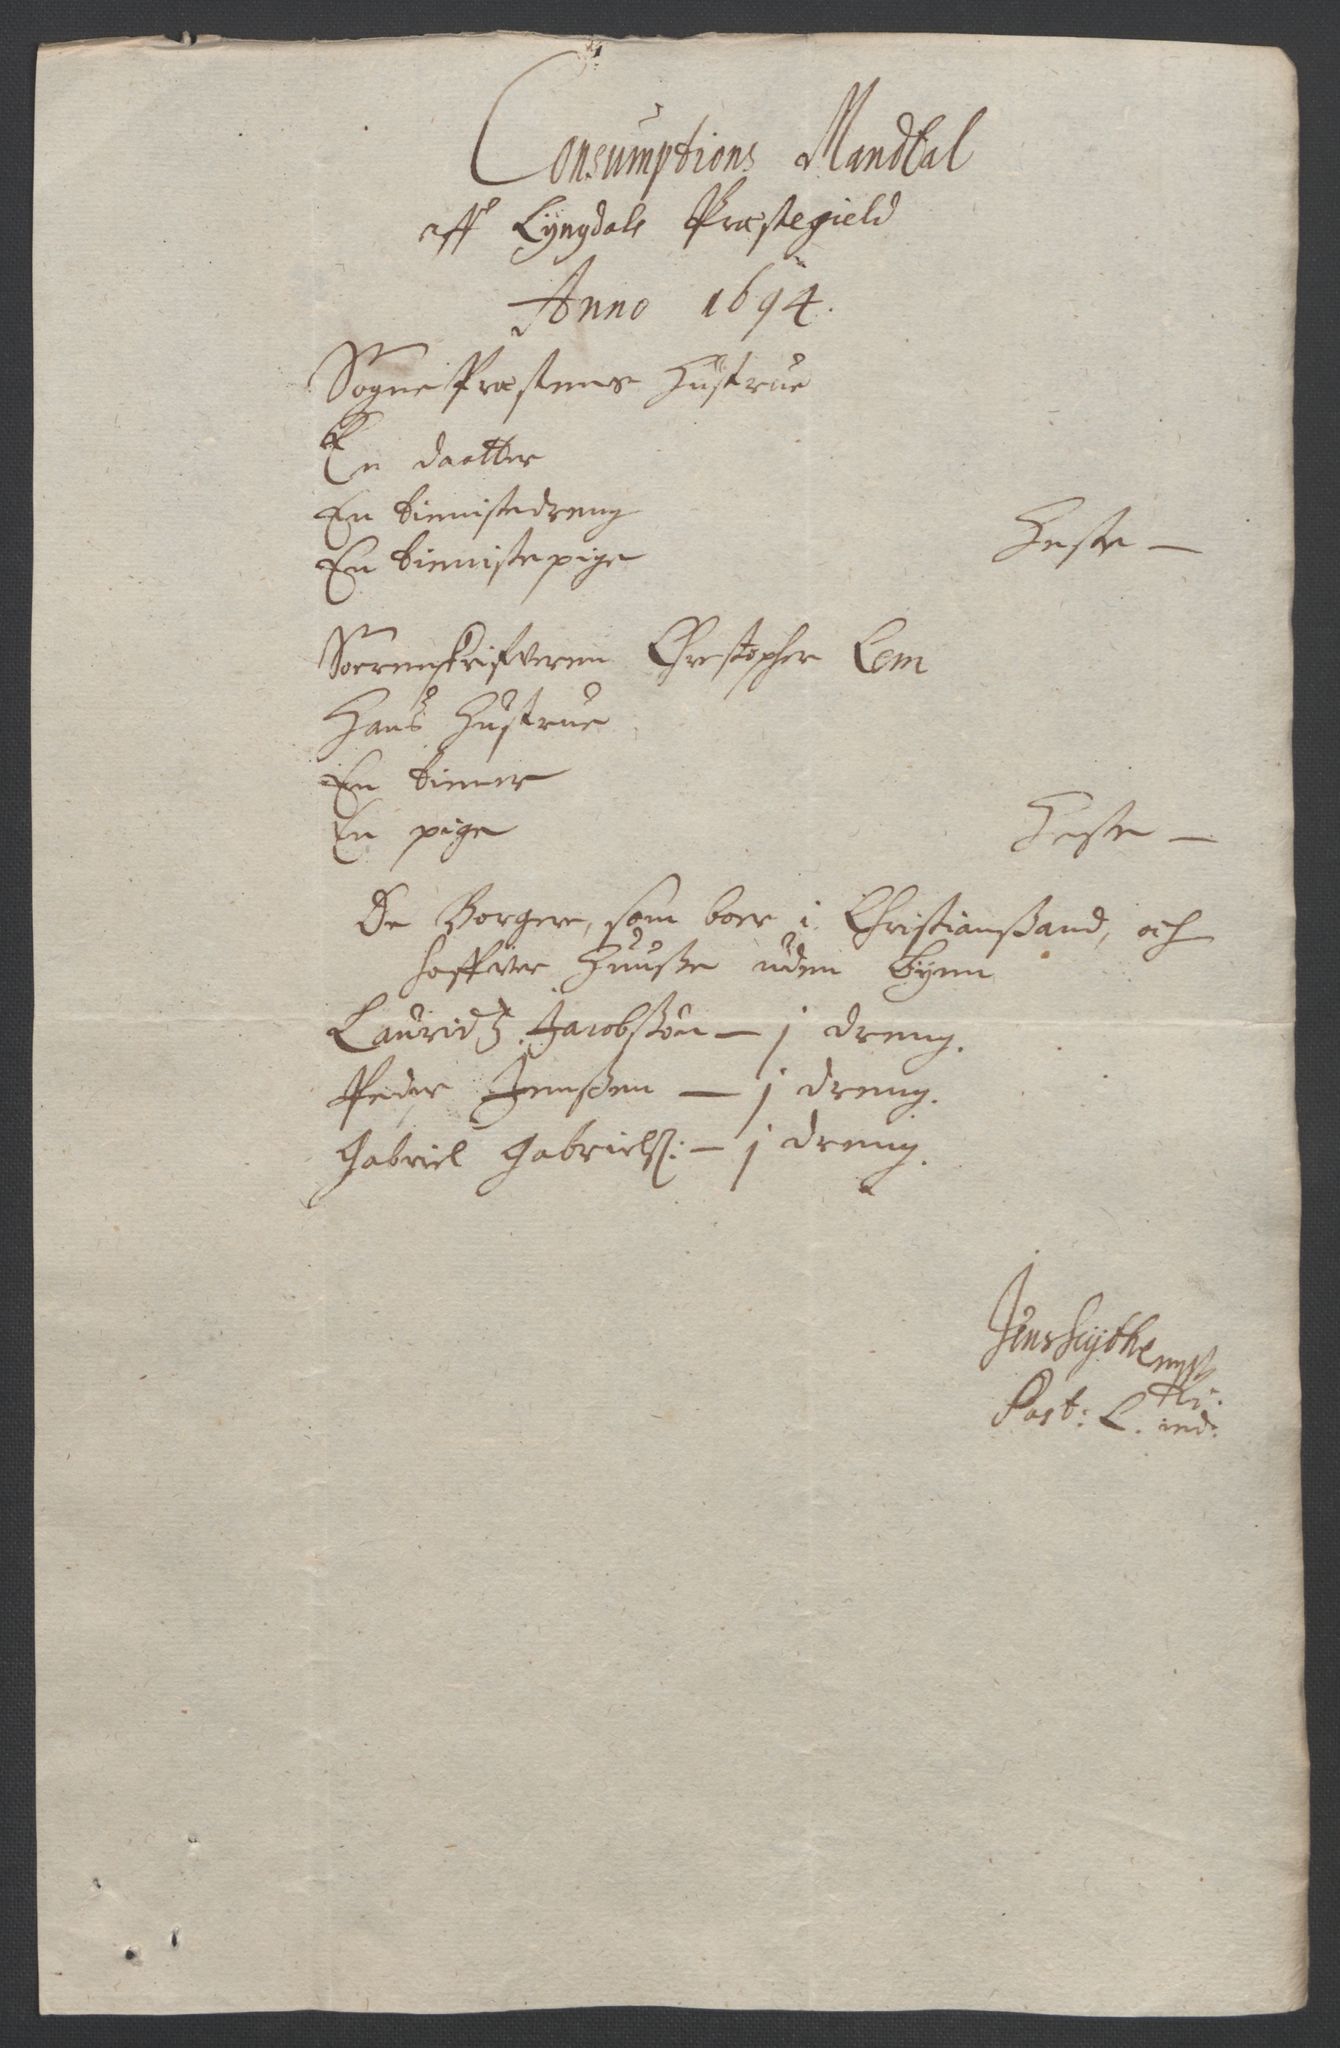 Consumptions Mandtal
aff Lÿngdals Præstegield
Anno 1694.
Sogne Præstens Hustrue
En daatter
En tienistedreng
En tienistepige Heste —
Sorrenskrifveren Christopher Lem
Hans Hustrue
En tiener
En pige Heste —
De Borgere, som boer i Christianssand, och
haffver Huusse uden Byen
Lauridtz Jacobssøn — 1 dreng.
Peder Jenssen — 1 dreng.
Gabriel Gabriels: — 1 dreng.
Jens
Past: L.